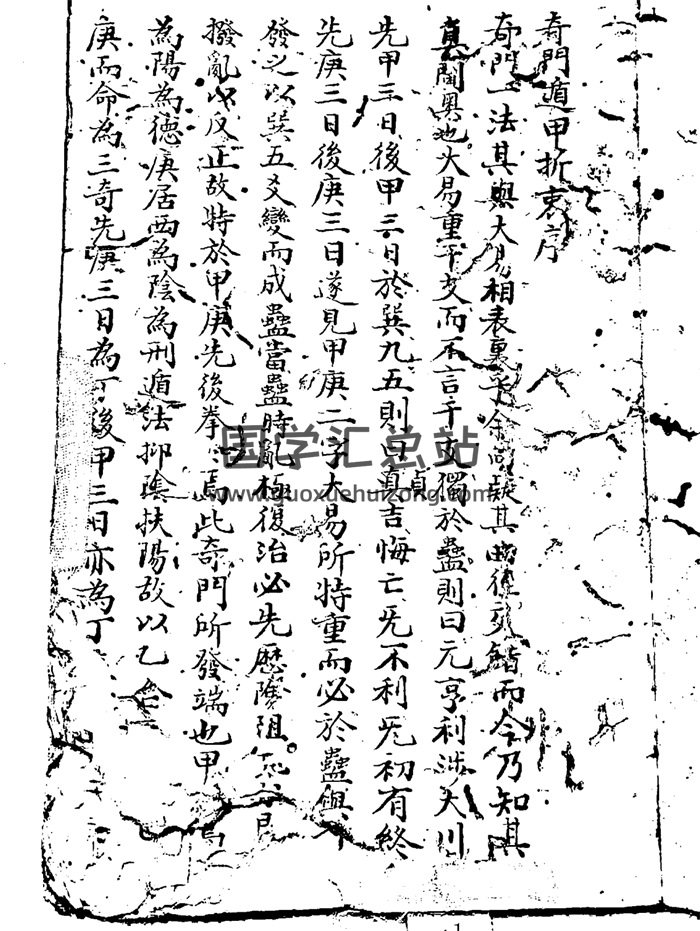 奇門遁甲折衷序
奇門一法其與大易相表裏乎余尚疑其曲徑交錯而今乃知其
真閫奧也大易重干支而不言干支獨於蠱則曰元亨利涉大川
先甲三日後甲三日於巽九五則曰貞吉悔亡旡不利旡初有終
先庚三日後庚三日遂見甲庚二字大易所特重而必於蠱與
發之以巽五爻變而成蠱當蠱時亂極復治必先歷險阻
撥亂以反正故特於甲庚先後拳〻焉此奇門所發端也甲
為陽為德庚居西為陰為刑遁法抑陰扶陽故以乙合
庚而命為三奇先庚三日為丁後甲三日亦為丁
国学汇总站
www.guoxuehuizong.com
1